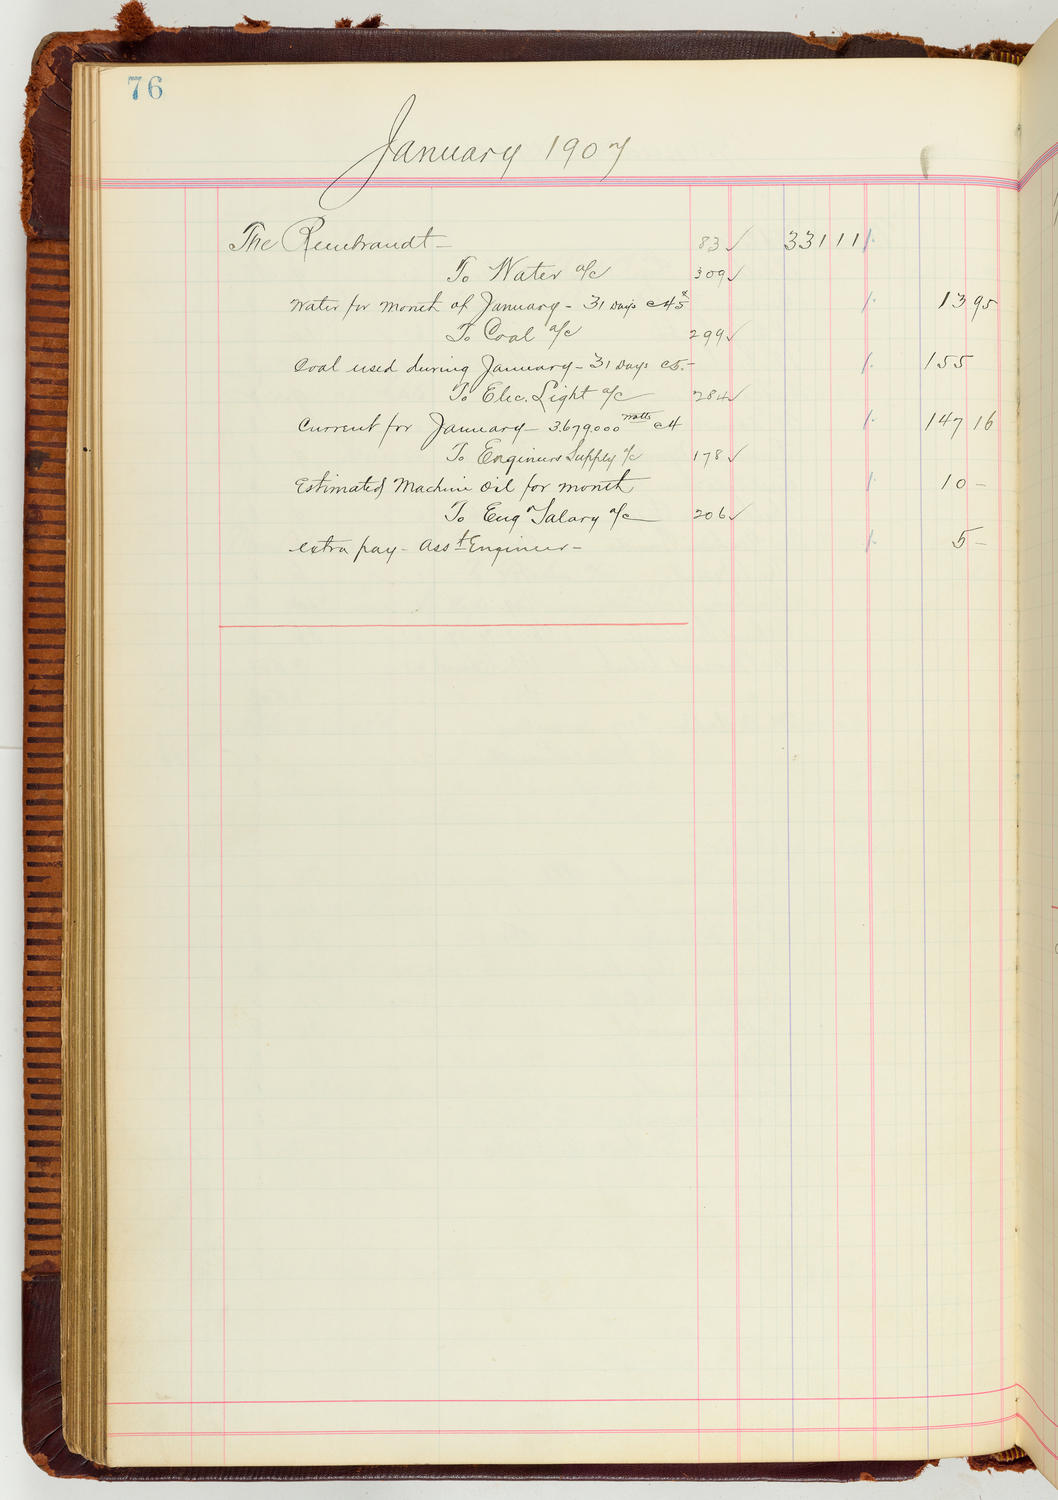 76
January 1907
The Rembrandt — 83 ✓ 331 11
To Water a/c 309 ✓
Water for Month of January - 31 Days @ 45¢ 13 95
To Coal a/c 299 ✓
Coal used during January - 31 Days @ 5.- 155
To Elec. Light a/c 284 ✓
Current for January - 3.679.000 watts @ 4 147 16
To Engineers Supply a/c 178 ✓
Estimated Machine Oil for month 10 -
To Eng'r Salary a/c 206 ✓
extra pay - Ass't Engineer - 5 -